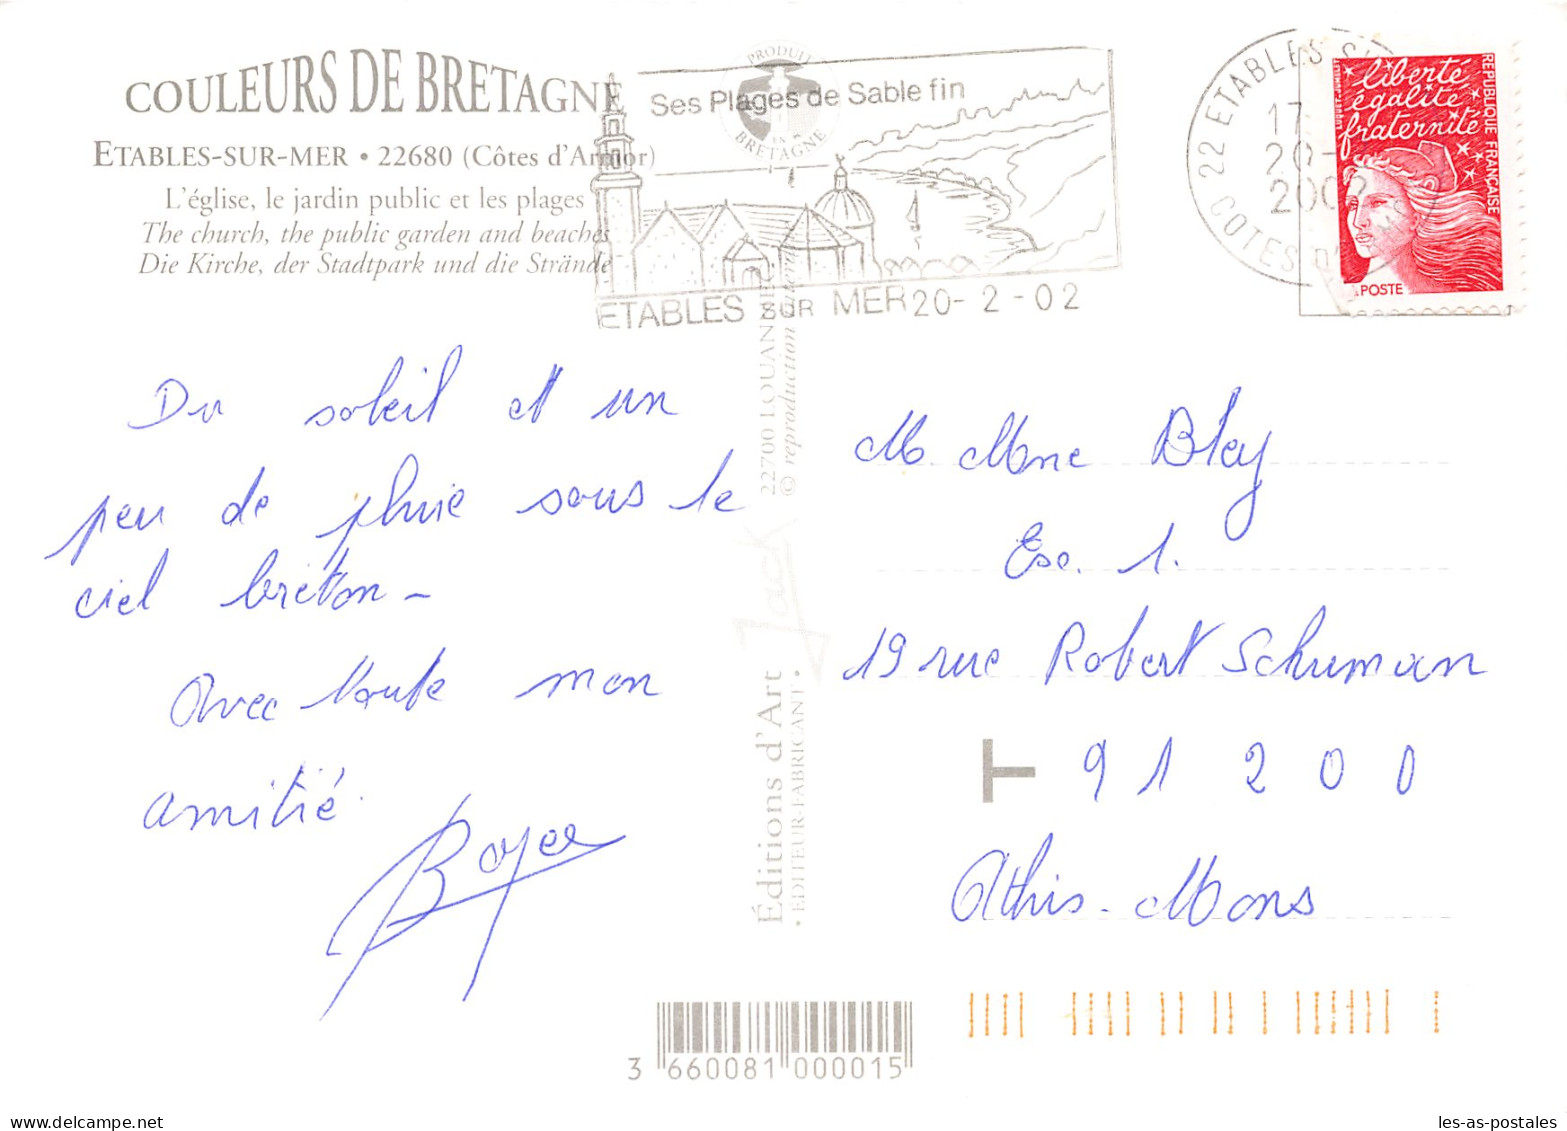 COULEURS DE BRETAGNE
ETABLES-SUR-MER • 22680 (Côtes d'Armor)
L'église, le jardin public et les plages
The church, the public garden and beaches
Die Kirche, der Stadtpark und die Strände
PRODUIT
EN
BRETAGNE
Ses Plages de Sable fin
ETABLES SUR MER 20-2-02
22 ETABLES S
17
20-
2002
COTES D'
liberté
égalité
fraternité
RÉPUBLIQUE FRANÇAISE
LA POSTE
Du soleil et un
peu de pluie sous le
ciel breton -
Avec toute mon
amitié.
Boyer
22700 LOUANNEC
© reproduction
Jack
Éditions d'Art
• EDITEUR-FABRICANT •
M Mme Bley
Esc. 1.
19 rue Robert Schuman
T 91200
Athis-Mons
3 660081 000015
les-as-postales